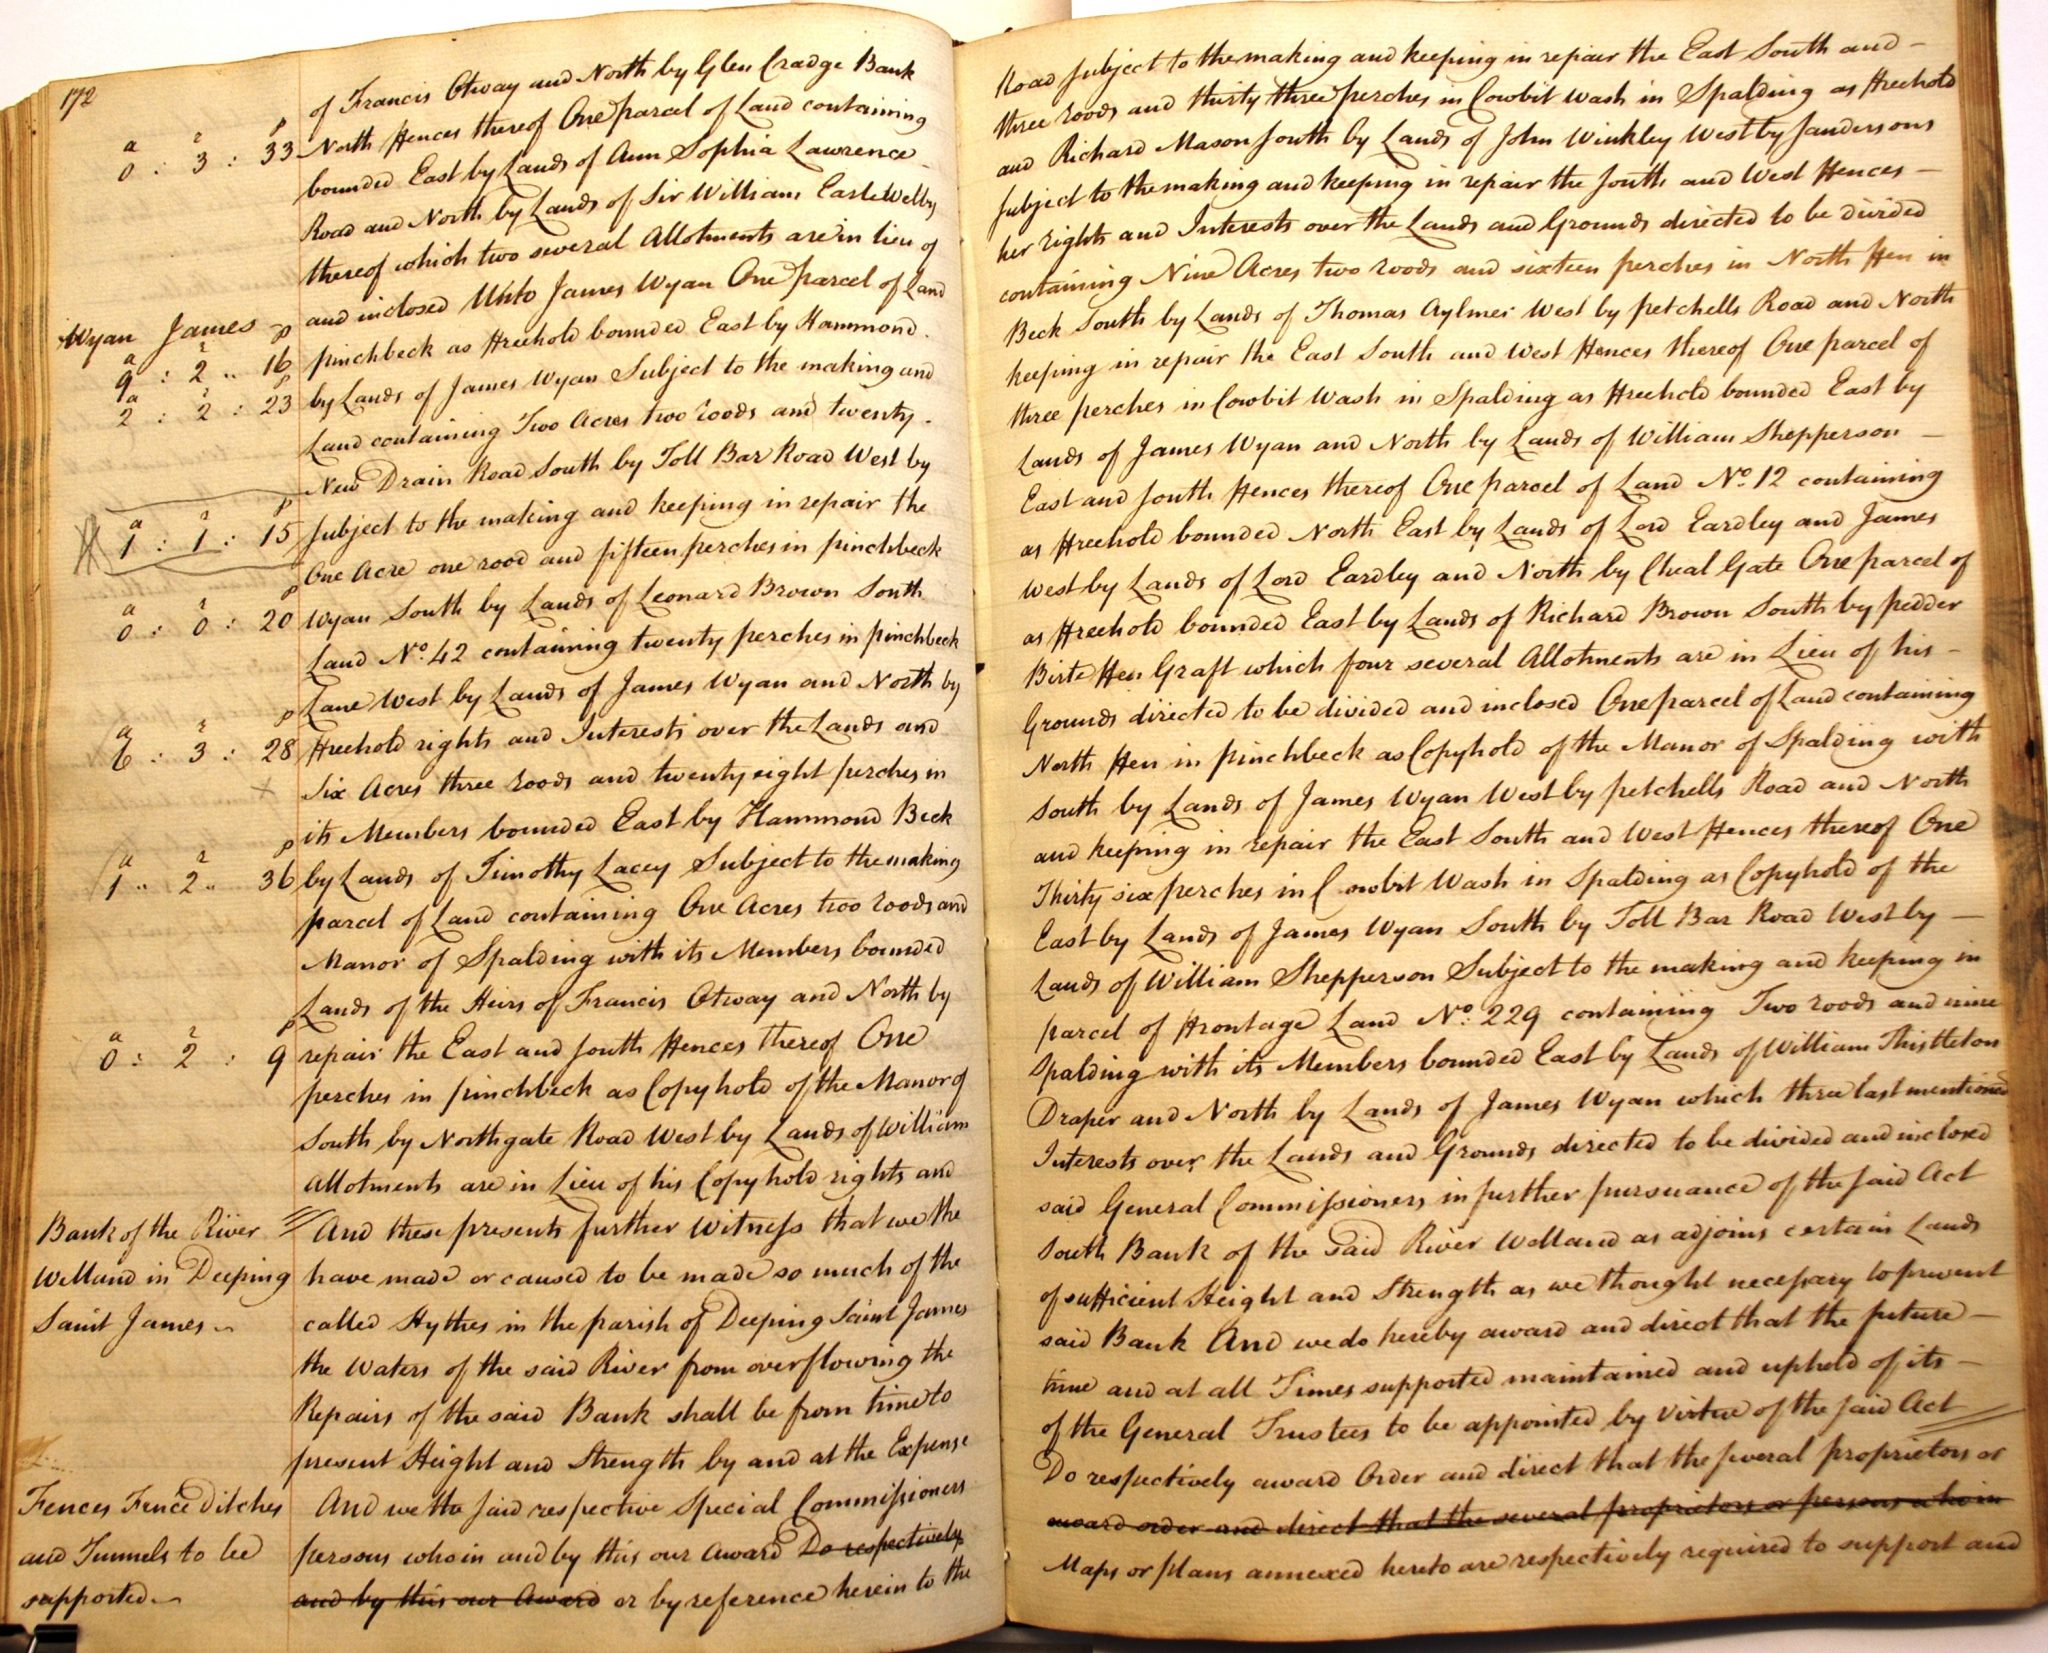 172
of Francis Otway and North by Glen Cradge Bank
a r p
0 : 3 : 33
North Fences thereof One parcel of Land containing
bounded East by Lands of Ann Sophia Lawrence
Road and North by Lands of Sir William Earle Welby
thereof which two several Allotments are in lieu of
and inclosed Unto James Wyan One parcel of Land
Wyan James
a r p
9 : 2 .. 16
pinchbeck as Freehold bounded East by Hammond
a r p
2 : 2 : 23
by Lands of James Wyan Subject to the making and
Land containing Two Acres two roods and twenty
New Drain Road South by Toll Bar Road West by
a r p
1 : 1 : 15
Subject to the making and keeping in repair the
One Acre one rood and fifteen perches in pinchbeck
a r p
0 : 0 : 20
Wyan South by Lands of Leonard Brown South
Land No. 42 containing twenty perches in pinchbeck
Lane West by Lands of James Wyan and North by
a r p
6 : 3 : 28
Freehold rights and Interests over the Lands and
Six Acres three roods and twenty eight perches in
its Members bounded East by Hammond Beck
a r p
1 .. 2 .. 36
by Lands of Timothy Lacey Subject to the making
parcel of Land containing One Acres two roods and
Manor of Spalding with its Members bounded
Lands of the Heirs of Francis Otway and North by
a r p
0 : 2 : 9
repair the East and South Fences thereof One
perches in pinchbeck as Copyhold of the Manor of
South by Northgate Road West by Lands of William
Allotments are in Lieu of his Copyhold rights and
Bank of the River
Welland in Deeping
Saint James
And these presents further Witness that we the
have made or caused to be made so much of the
called Hythes in the parish of Deeping Saint James
the Waters of the said River from overflowing the
Repairs of the said Bank shall be from time to
present Height and Strength by and at the Expense
Fences Fence Ditches
and Tunnels to be
supported
And we the said respective Special Commissioners
persons who in and by this our Award Do respectively
and by this our Award or by reference herein to the
Road Subject to the making and keeping in repair the East South and
three roods and thirty three perches in Cowbit Wash in Spalding as Freehold
and Richard Mason South by Lands of John Winkley West by Sandersons
Subject to the making and keeping in repair the South and West Fences
her rights and Interests over the Lands and Grounds directed to be divided
containing Nine Acres two roods and sixteen perches in North Fen in
Beck South by Lands of Thomas Aylmer West by petchells Road and North
keeping in repair the East South and West Fences thereof One parcel of
three perches in Cowbit Wash in Spalding as Freehold bounded East by
Lands of James Wyan and North by Lands of William Shepperson
East and South Fences thereof One parcel of Land No. 12 containing
as Freehold bounded North East by Lands of Lord Eardley and James
West by Lands of Lord Eardley and North by Cheal Gate One parcel of
as Freehold bounded East by Lands of Richard Brown South by pedder
Birte Fen Graft which four several Allotments are in Lieu of his
Grounds directed to be divided and inclosed One parcel of Land containing
North Fen in pinchbeck as Copyhold of the Manor of Spalding with
South by Lands of James Wyan West by petchells Road and North
and keeping in repair the East South and West Fences thereof One
Thirty six perches in Cowbit Wash in Spalding as Copyhold of the
East by Lands of James Wyan South by Toll Bar Road West by
Lands of William Shepperson Subject to the making and keeping in
parcel of Frontage Land No. 229 containing Two roods and nine
Spalding with its Members bounded East by Lands of William Thistleton
Draper and North by Lands of James Wyan which three last mentioned
Interests over the Lands and Grounds directed to be divided and inclosed
said General Commissioners in further pursuance of the said Act
South Bank of the said River Welland as adjoins certain Lands
of sufficient Height and Strength as we thought necessary to prevent
said Bank And we do hereby award and direct that the future
time and at all Times supported maintained and upheld of its
of the General Trustees to be appointed by Virtue of the said Act
Do respectively award Order and direct that the several proprietors or
award order and direct that the several proprietors or persons who in
Maps or plans annexed hereto are respectively required to support and